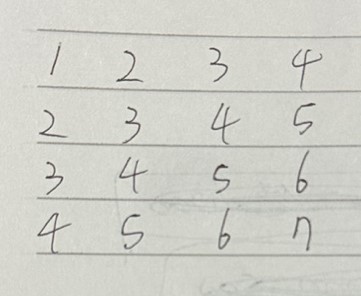 1 2 3 4
2 3 4 5
3 4 5 6
4 5 6 7